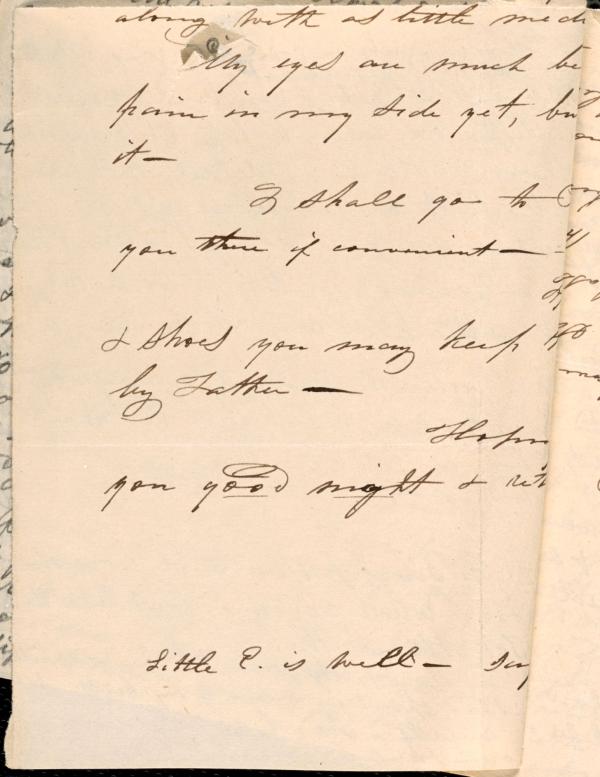 along with as little
My eyes are much be
pain in my side yet, bu
it —
I shall go to
you there if convenient —
& shoes you may keep
by Father —
you good night &
Little E. is well —